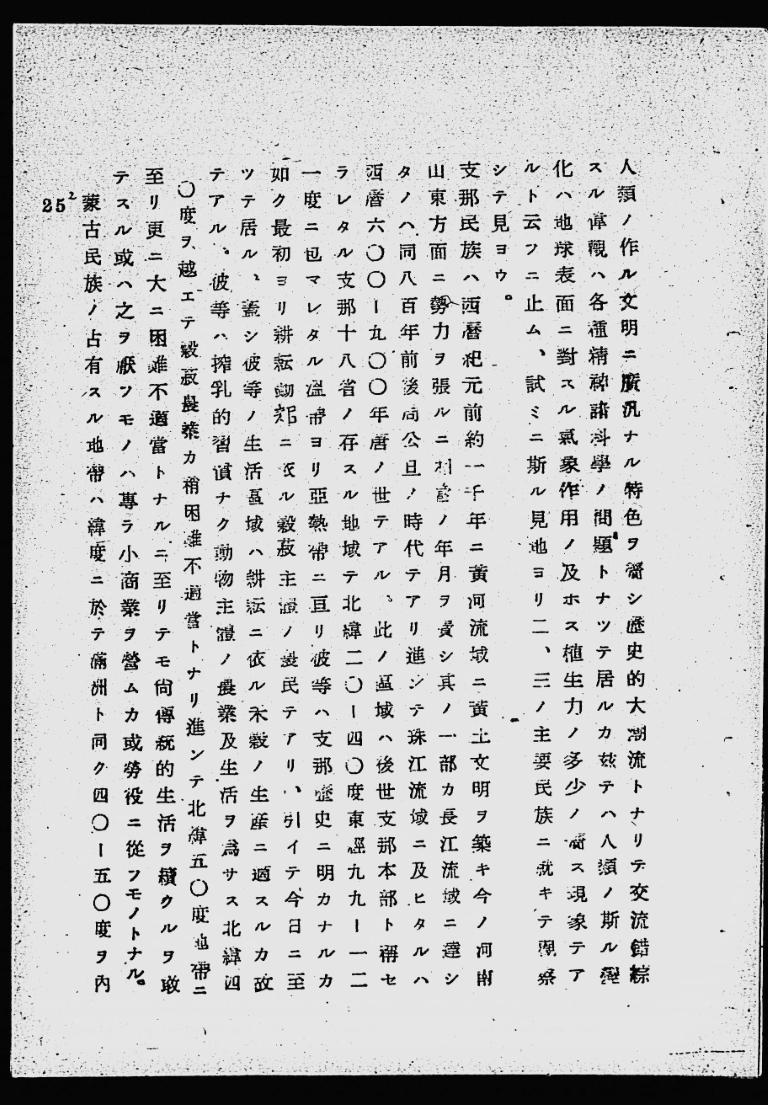 人類ノ作ル文明ニ廣汎ナル特色ヲ齎シ歴史的大潮流トナリテ交流錯綜
スル偉觀ハ各種精神諸科學ノ問題トナツテ居ルカ茲テハ人類ノ斯ル變
化ハ地球表面ニ對スル氣象作用ノ及ホス植生力ノ多少ノ齎ス現象テア
ルト云フニ止ム、試ミニ斯ル見地ヨリ二、三ノ主要民族ニ就キテ觀察
シテ見ヨウ。
支那民族ハ西暦紀元前約一千年ニ黄河流域ニ黄土文明ヲ築キ今ノ河南
山東方面ニ勢力ヲ張ルニ相當ノ年月ヲ費シ其ノ一部カ長江流域ニ達シ
タノハ同八百年前後周公旦ノ時代テアリ進ンテ珠江流域ニ及ヒタルハ
西暦六〇〇ー九〇〇年唐ノ世テアル、此ノ區域ハ後世支那本部ト稱セ
ラレタル支那十八省ノ存スル地域テ北緯二〇ー四〇度東經九九ー一二
一度ニ包マレタル溫帶ヨリ亞熱帶ニ亘リ彼等ハ支那歴史ニ明カナルカ
如ク最初ヨリ耕耘ニ依ル穀菽主體ノ農民テアリ、引イテ今日ニ至
ツテ居ル、蓋シ彼等ノ生活區域ハ耕耘ニ依ル禾穀ノ生産ニ適スルカ故
テアル。彼等ハ搾乳的習慣ナク動物主體ノ農業及生活ヲ爲サス北緯四
〇度ヲ越エテ穀菽農業カ稍困難不適當トナリ進ンテ北緯五〇度地帶ニ
至リ更ニ大ニ困難不適當トナルニ至リテモ尚傳統的生活ヲ續クルヲ敢
テスル或ハ之ヲ厭フモノハ專ラ小商業ヲ營ムカ或勞役ニ從フモノトナル。
蒙古民族ノ占有スル地帶ハ緯度ニ於テ滿洲ト同ク四〇ー五〇度ヲ内
25²